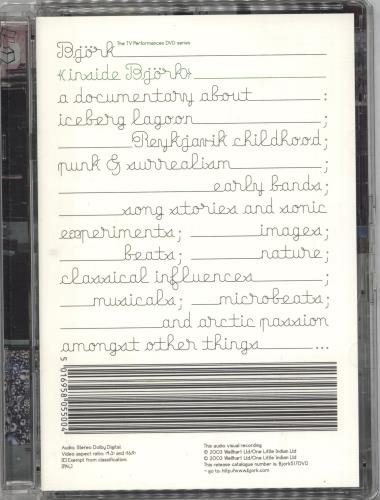 Björk The TV Performances DVD series
<inside Björk>
a documentary about :
iceberg lagoon ;
Reykjavik childhood;
punk & surrealism ;
early bands;
song stories and sonic
experiments; images;
beats; nature;
classical influences ;
musicals; microbeats;
and arctic passion
amongst other things ...
5 016958 055004
Audio: Stereo Dolby Digital
Video aspect ratio:
(E) Exempt from classification.
(PAL)
This audio visual recording
© 2003 Wellhart Ltd/One Little Indian Ltd
℗ 2003 Wellhart Ltd/One Little Indian Ltd
This release catalogue number is: Bjork517DVD
> go to: http://www.bjork.com